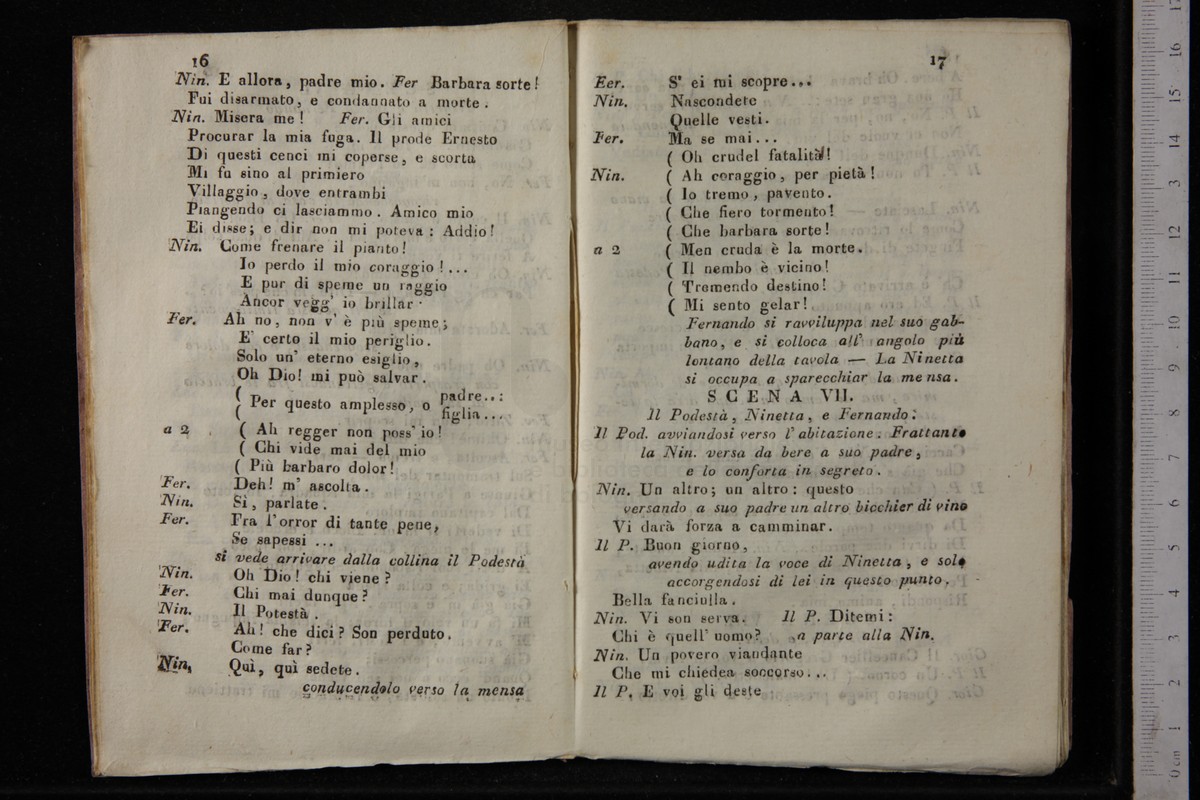 16
Nin. E allora, padre mio. Fer Barbara sorte!
Fui disarmato, e condannato a morte.
Nin. Misera me! Fer. Gli amici
Procurar la mia fuga. Il prode Ernesto
Di questi cenci mi coperse, e scorta
Mi fu sino al primiero
Villaggio, dove entrambi
Piangendo ci lasciammo. Amico mio
Ei disse; e dir non mi poteva: Addio!
Nin. Come frenare il pianto!
Io perdo il mio coraggio!...
E pur di speme un raggio
Ancor vegg' io brillar.
Fer. Ah no, non v' è più speme;
E' certo il mio periglio.
Solo un' eterno esiglio,
Oh Dio! mi può salvar.
( Per questo amplesso, o padre..:
( figlia...
a 2 ( Ah regger non poss' io!
( Chi vide mai del mio
( Più barbaro dolor!
Fer. Deh! m' ascolta.
Nin. Sì, parlate.
Fer. Fra l'orror di tante pene,
Se sapessi ...
si vede arrivare dalla collina il Podestà
Nin. Oh Dio! chi viene?
Fer. Chi mai dunque?
Nin. Il Potestà.
Fer. Ah! che dici? Son perduto.
Come far?
Nin. Quì, quì sedete.
conducendolo verso la mensa
17
Eer. S' ei mi scopre...
Nin. Nascondete
Quelle vesti.
Fer. Ma se mai...
( Oh crudel fatalità!!
Nin. ( Ah coraggio, per pietà!
( Io tremo, pavento.
( Che fiero tormento!
( Che barbara sorte!
a 2 ( Men cruda è la morte.
( Il nembo è vicino!
( Tremendo destino!
( Mi sento gelar!
Fernando si ravviluppa nel suo gab-
bano, e si colloca all' angolo più
lontano della tavola — La Ninetta
si occupa a sparecchiar la mensa.
SCENA VII.
Il Podestà, Ninetta, e Fernando.
Il Pod. avviandosi verso l' abitazione. Frattanto
la Nin. versa da bere a suo padre,
e lo conforta in segreto.
Nin. Un altro; un altro: questo
versando a suo padre un altro bicchier di vino
Vi darà forza a camminar.
Il P. Buon giorno,
avendo udita la voce di Ninetta, e solo
accorgendosi di lei in questo punto.
Bella fanciulla.
Nin. Vi son serva. Il P. Ditemi:
Chi è quell' uomo? a parte alla Nin.
Nin. Un povero viandante
Che mi chiedea soccorso...
Il P. E voi gli deste